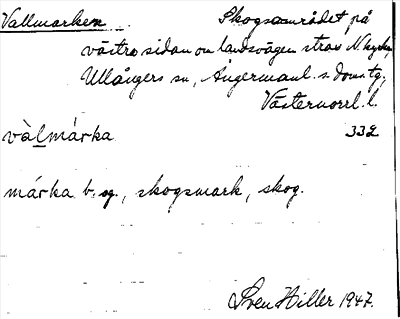 Vallmarken Skogsområdet på
västra sidan om landsvägen strax N. kyrkan,
Ullångers sn, Ångermanl. s. doms.tg,
Västernorrl. l.
vàlmárka 332
márka b. sg., skogsmark, skog.
Sven Hiller 1947.